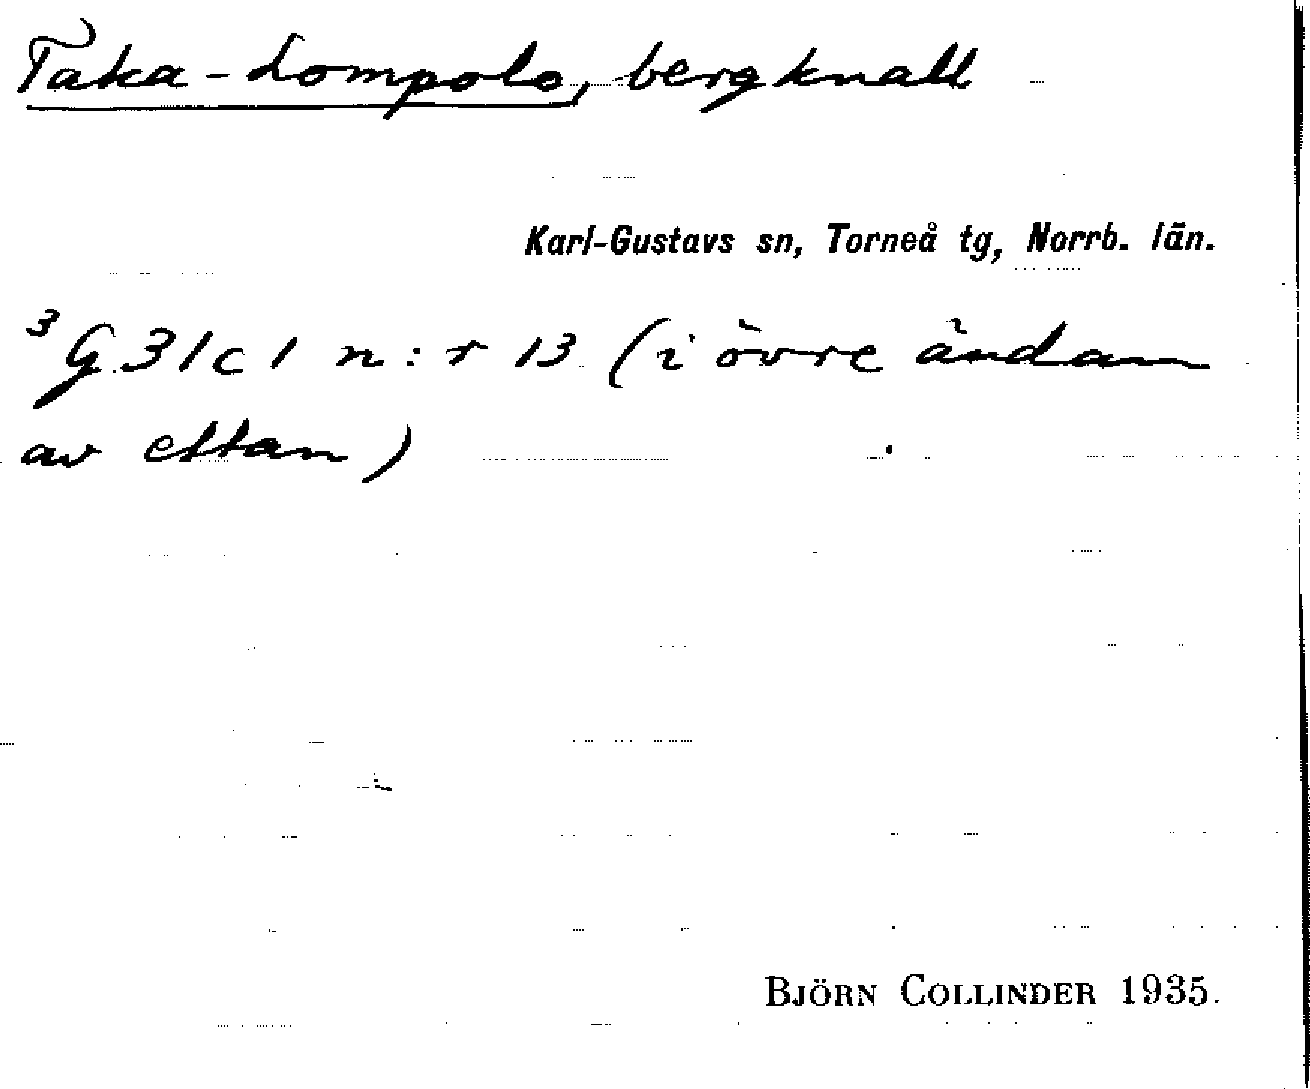 Taka-Lompolo, bergknall
Karl-Gustavs sn, Torneå tg, Norrb. län.
³G31c1 n:r 13 (i övre ändan
av ettan)
BJÖRN COLLINDER 1935.